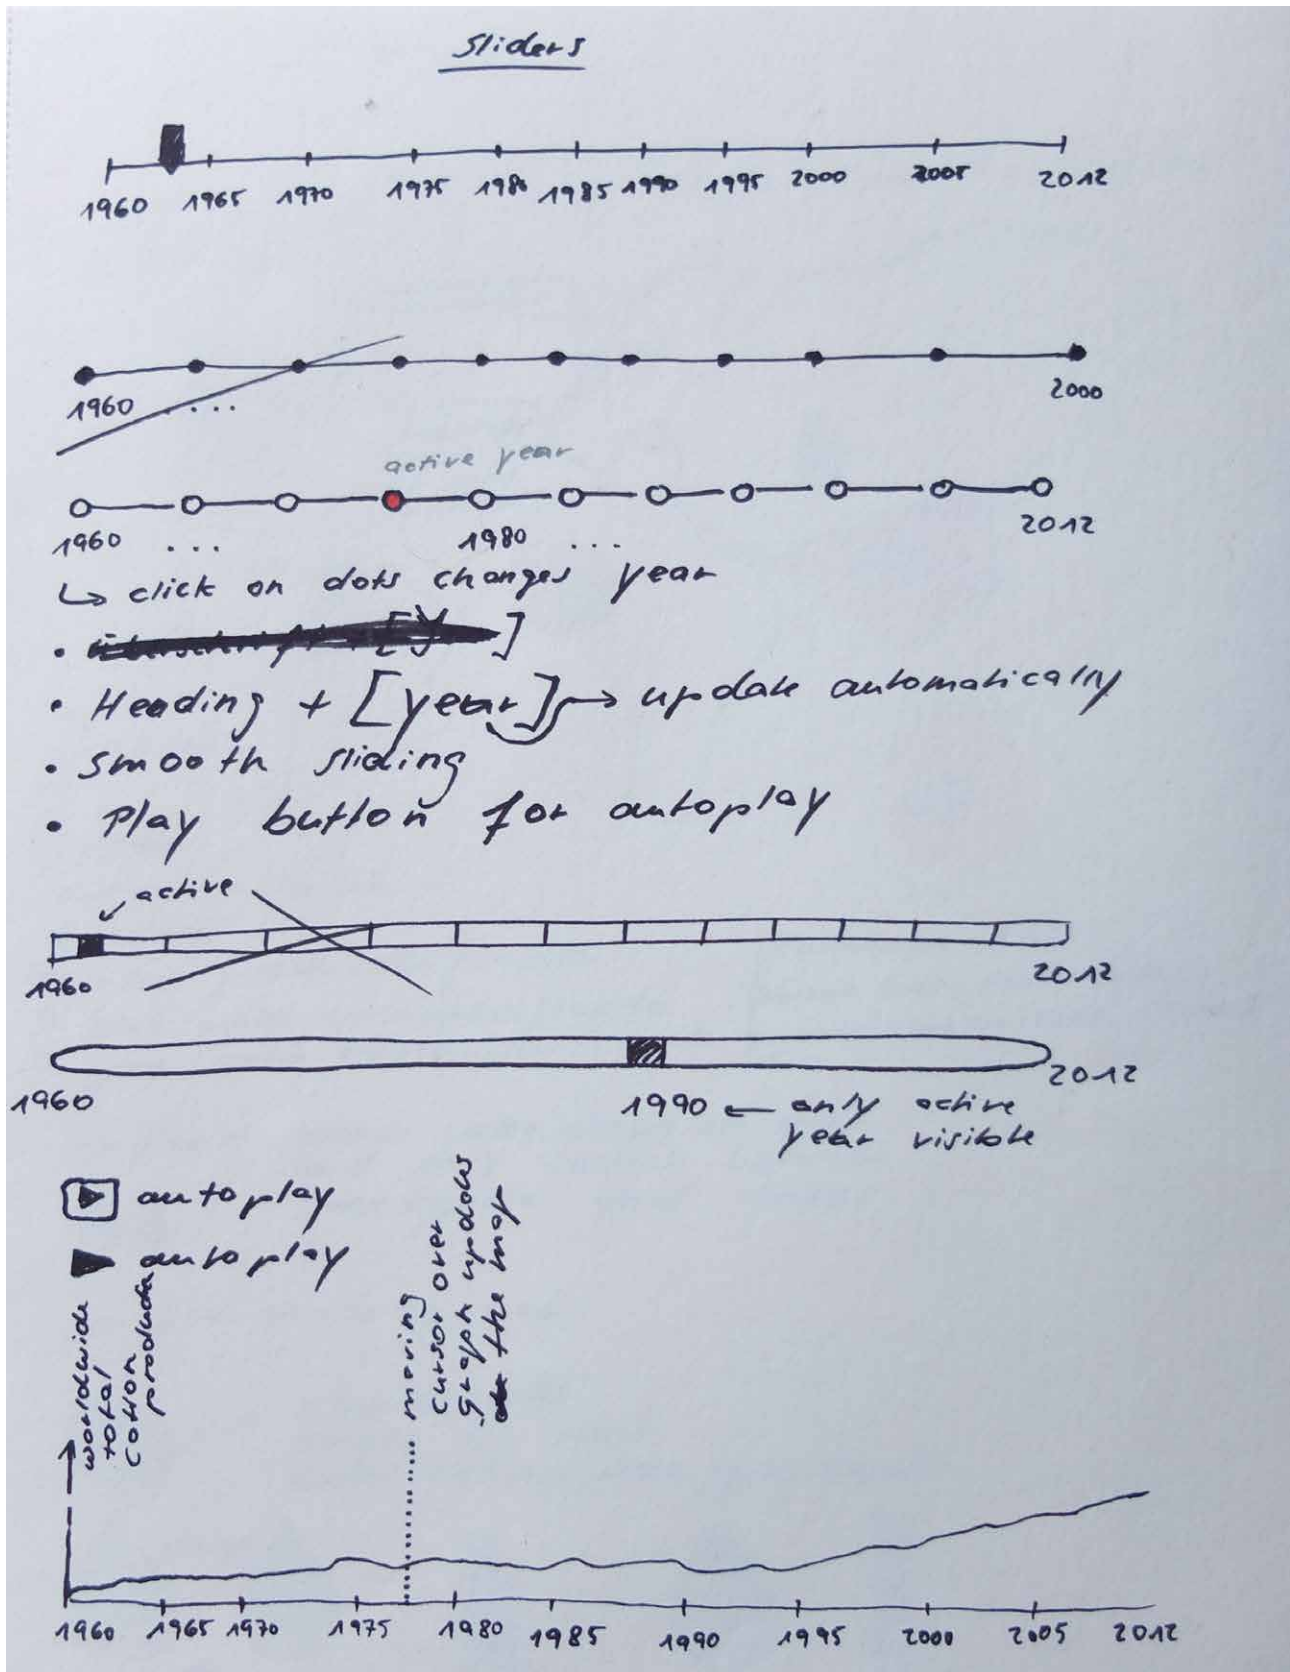 Sliders
1960 1965 1970 1975 1980 1985 1990 1995 2000 2005 2012
1960 .... 2000
active year
1960 ... 1980 ... 2012
↳ click on dots changes year
• Heading + [year] → update automatically
• smooth sliding
• Play button for autoplay
active
1960 2012
1960 2012
1990 ← only active
year visible
autoplay
autoplay
worldwide
total
cotton
production
moving
cursor over
graph updates
the map
1960 1965 1970 1975 1980 1985 1990 1995 2000 2005 2012